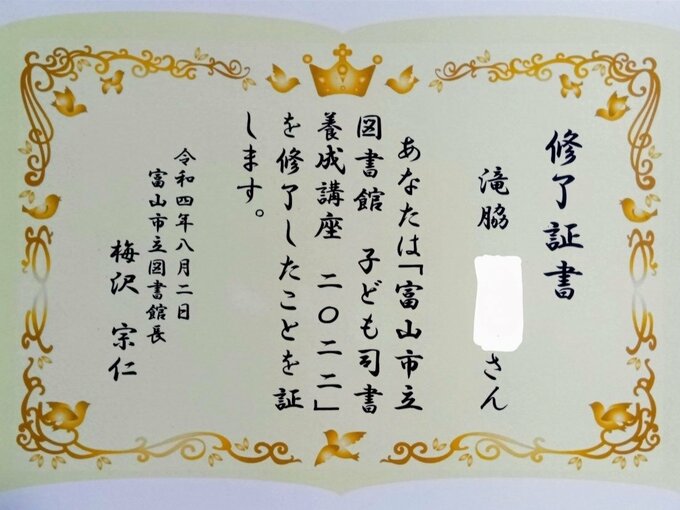 修了証書
滝脇 さん
あなたは「富山市立
図書館 子ども司書
養成講座 二〇二二」
を修了したことを証
します。
令和四年八月二日
富山市立図書館長
梅沢 宗仁